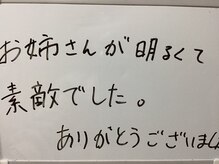 お姉さんが明るくて
素敵でした。
ありがとうございました